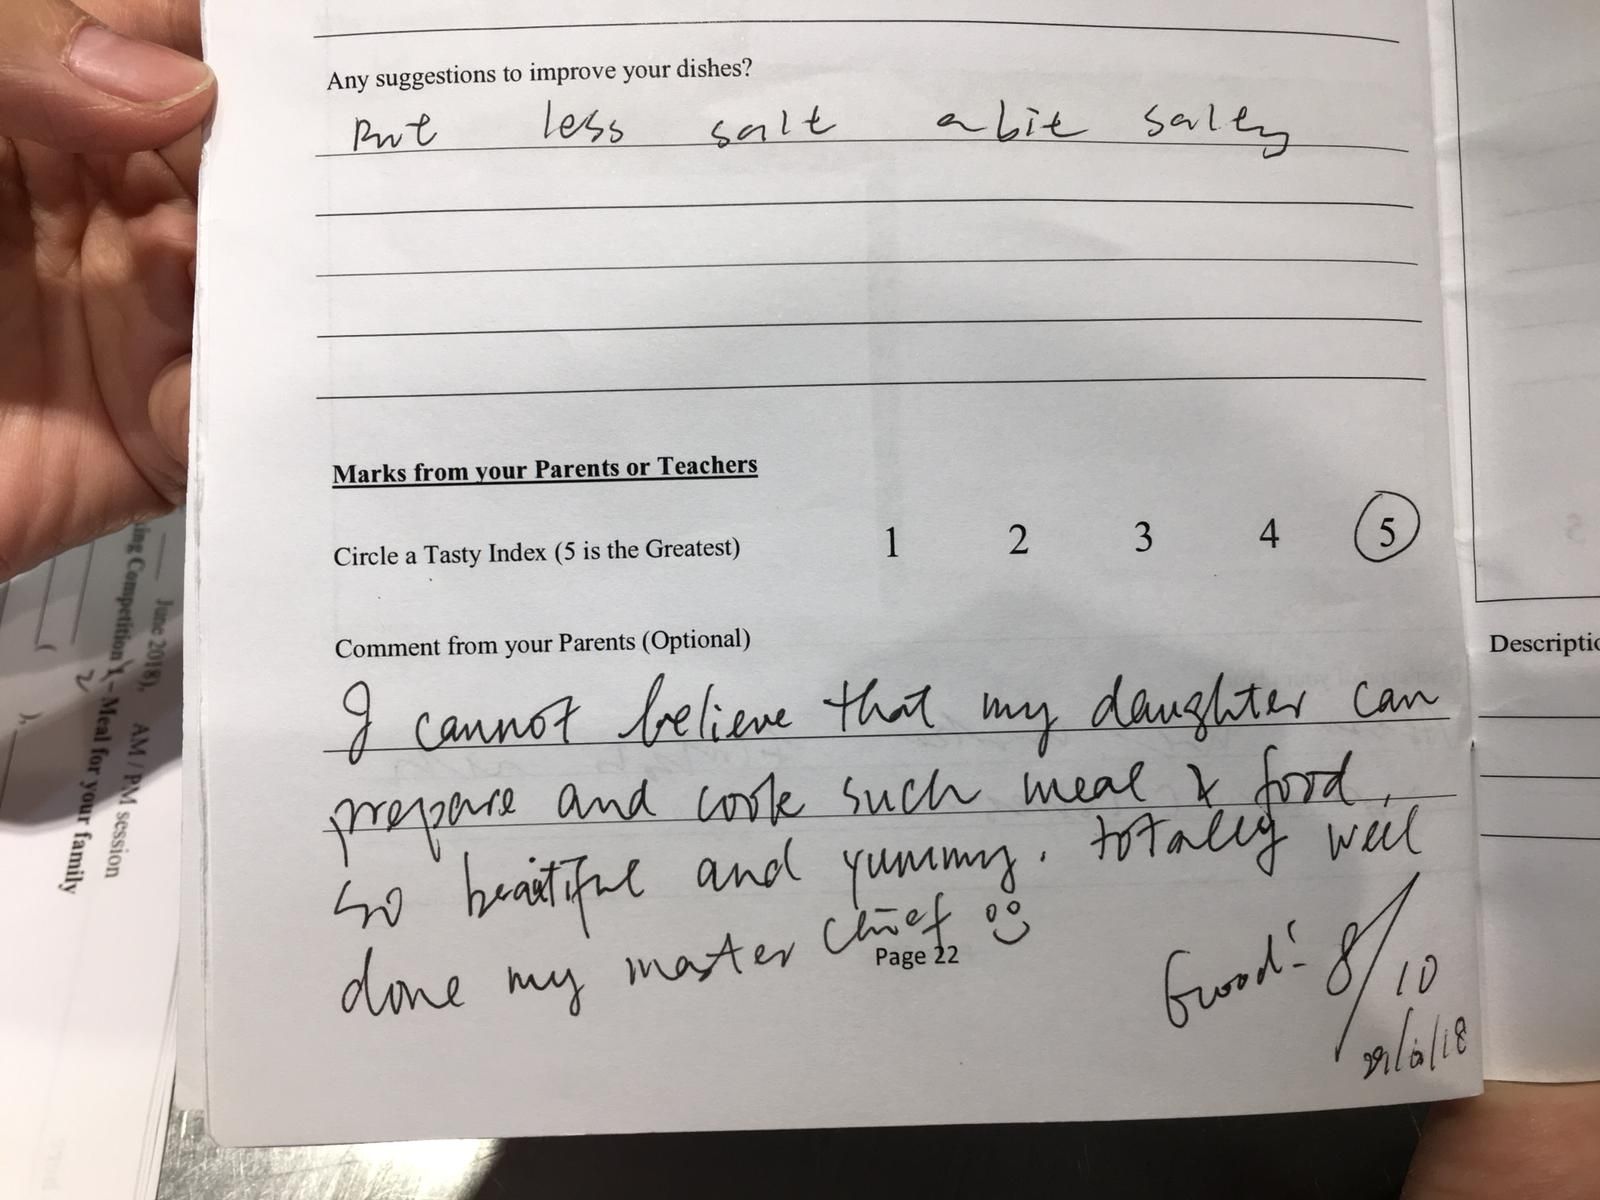 Any suggestions to improve your dishes?
Put less salt a bit salty
Marks from your Parents or Teachers
Circle a Tasty Index (5 is the Greatest) 1 2 3 4 5
Comment from your Parents (Optional)
I cannot believe that my daughter can
prepare and cook such meal & food,
so beautiful and yummy. totally well
done my master chief
Page 22
Good! 8/10
29/6/18
Descriptio
June 2018), AM / PM session
ing Competition 2 – Meal for your family